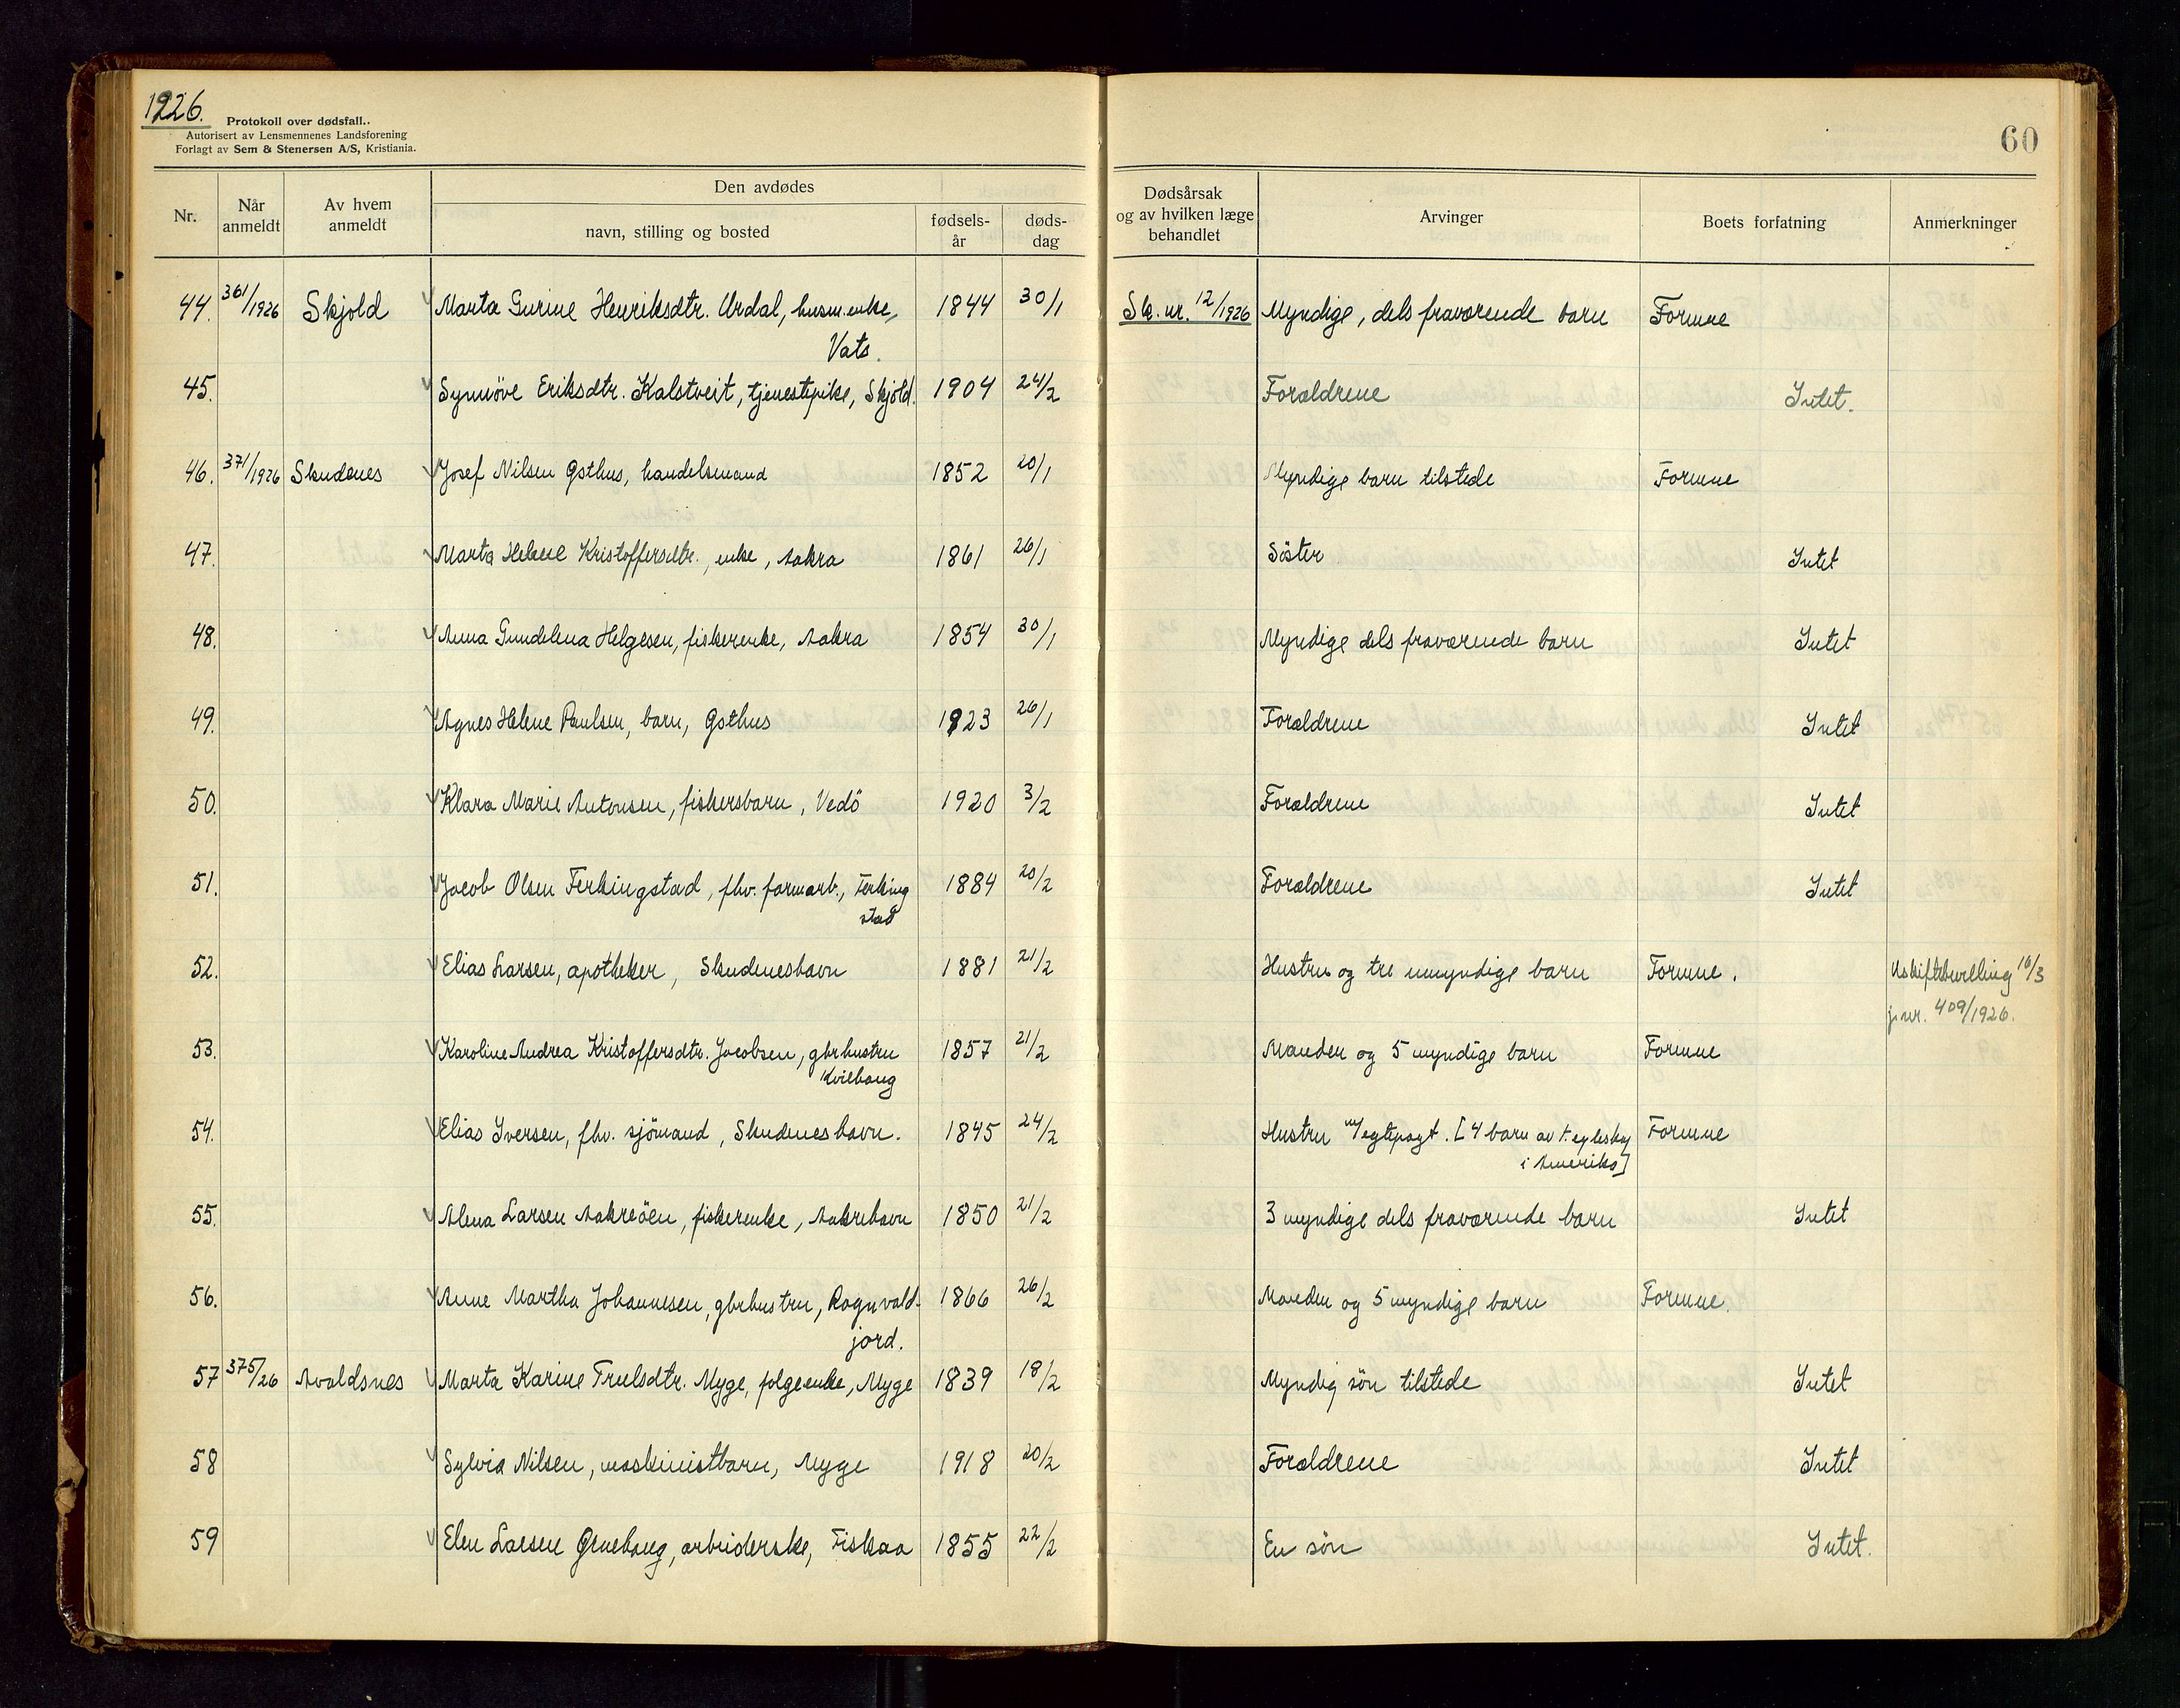 1926.
Protokoll over dødsfall..
Autorisert av Lensmennenes Landsforening
Forlagt av Sem & Stenersen A/S, Kristiania.
60
Nr.
Når anmeldt
Av hvem anmeldt
Den avdødes
navn, stilling og bosted
fødsels-år
døds-dag
Dødsårsak og av hvilken læge behandlet
Arvinger
Boets forfatning
Anmerkninger
44. 361/1926 Skjold Marta Gurine Henriksdtr. Urdal, husm.enke, 1844 30/1 Sk. nr. 12/1926 Myndige, dels fraværende barn Formue
Vats.
45. Synnöve Eriksdtr. Kalstveit, tjenestepike, Skjold. 1904 24/2 Forældrene Intet.
46. 371/1926 Skudenes Josef Nilsen Østhus, handelsmand 1852 20/1 Myndige barn tilstede Formue
47. Marta Helene Kristoffersdtr., enke, Aakra 1861 26/1 Söster Intet
48. Anna Gundelena Helgesen, fiskerenke, Aakra 1854 30/1 Myndige dels fraværende barn Intet
49. Agnes Helene Paulsen, barn, Østhus 1923 26/1 Forældrene Intet
50. Klara Marie Antonsen, fiskersbarn, Vedö 1920 3/2 Forældrene Intet
51. Jacob Olsen Ferkingstad, fhv. farmarb., Ferking 1884 20/2 Forældrene Intet
stad
52. Elias Larsen, apotheker, Skudeneshavn 1881 21/2 Hustru og tre umyndige barn Formue. Uskiftebevilling 16/3
j.nr. 409/1926.
53. Karoline Andrea Kristoffersdtr. Jacobsen, gbrhustru 1857 21/2 Manden og 5 myndige barn Formue
Kvilhaug
54. Elias Iversen, fhv. sjömand, Skudeneshavn. 1845 24/2 Hustru m/egtepagt. [4 barn av 1. egtesky Formue
i Amerika]
55. Alena Larsen Aakreöen, fiskerenke, Aakrehavn 1850 21/2 3 myndige dels fraværende barn Intet
56. Anne Martha Johannesen, gbrhustru, Rognvald- 1866 26/2 Manden og 5 myndige barn Formue.
jord.
57 375/26 Avaldsnes Marta Karine Trulsdtr. Myge, folgeenke, Myge 1839 18/2 Myndig sön tilstede Intet
58 Sylvia Nilsen, maskinistbarn, Myge 1918 20/2 Forældrene Intet
59 Elen Larsen Gruehaug, arbeiderske, Fiskaa 1855 22/2 En sön Intet.